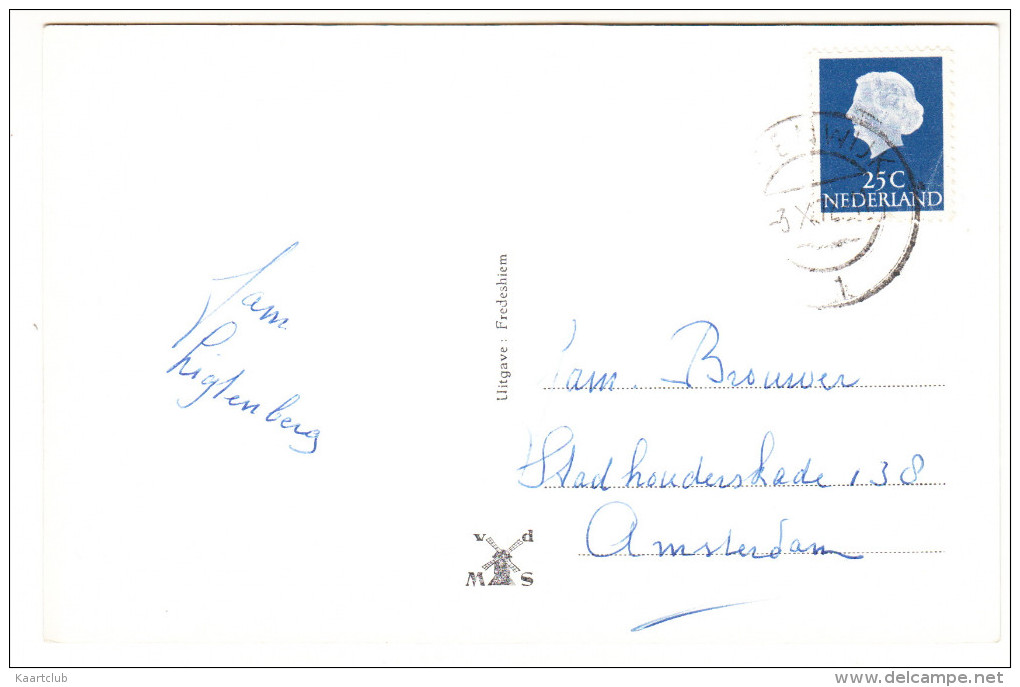 25 C
NEDERLAND
Fam.
Ligtenberg
Uitgave: Fredeshiem
Fam. Brouwer
Stadhouderskade 138
Amsterdam
v d
M S
1
Kaartclub
www.delcampe.net